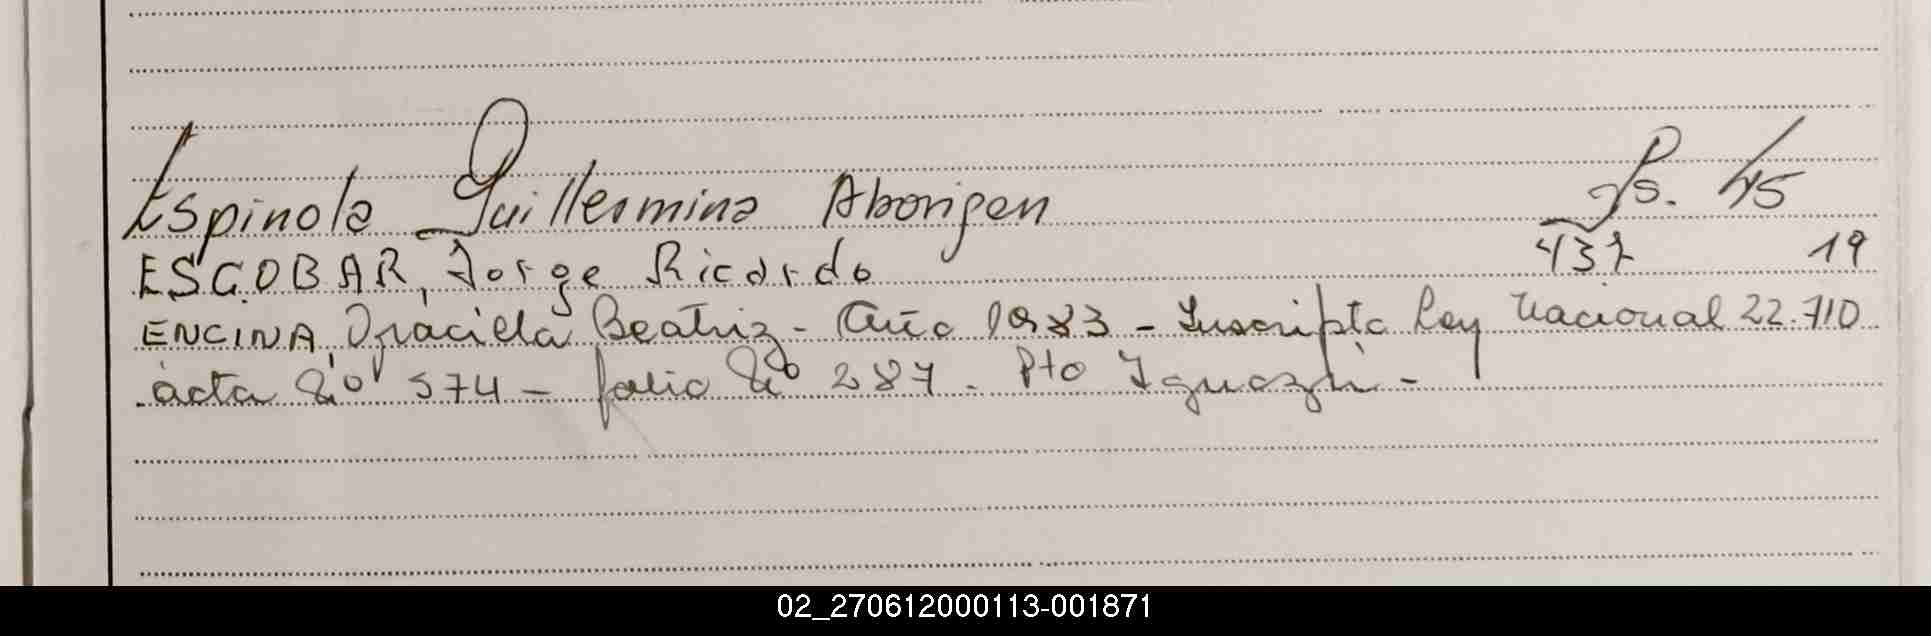 Espinola Guillermina Aborigen fs. 45
ESCOBAR, Jorge Ricardo 437 19
ENCINA, Graciela Beatriz - Año 1983 - Inscripta Ley Nacional 22.710
acta Nº 574 - folio Nº 287. Pto Iguazú -
02_270612000113-001871